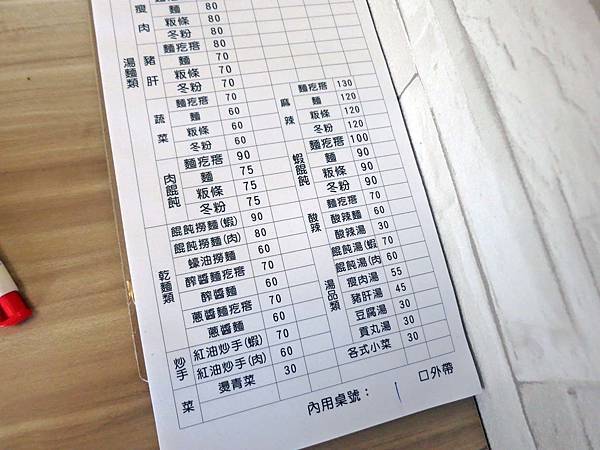 湯麵類
瘦肉
麵 80
粄條 80
冬粉 80
豬肝
麵疙瘩 80
麵 70
粄條 70
冬粉 70
蔬菜
麵疙瘩 70
麵 60
粄條 60
冬粉 60
肉餛飩
麵疙瘩 90
麵 75
粄條 75
冬粉 75
乾麵類
餛飩撈麵(蝦) 90
餛飩撈麵(肉) 80
蠔油撈麵 60
醡醬麵疙瘩 70
醡醬麵 60
蔥醬麵疙瘩 70
蔥醬麵 60
炒手
紅油炒手(蝦) 70
紅油炒手(肉) 60
菜
燙青菜 30
麻辣
麵疙瘩 130
麵 120
粄條 120
冬粉 120
蝦餛飩
麵疙瘩 100
麵 90
粄條 90
冬粉 90
酸辣
麵疙瘩 70
酸辣麵 60
湯品類
酸辣湯 30
餛飩湯(蝦 70
餛飩湯(肉 60
瘦肉湯 55
豬肝湯 45
豆腐湯 30
貢丸湯 30
各式小菜 30
內用桌號： 1 口外帶